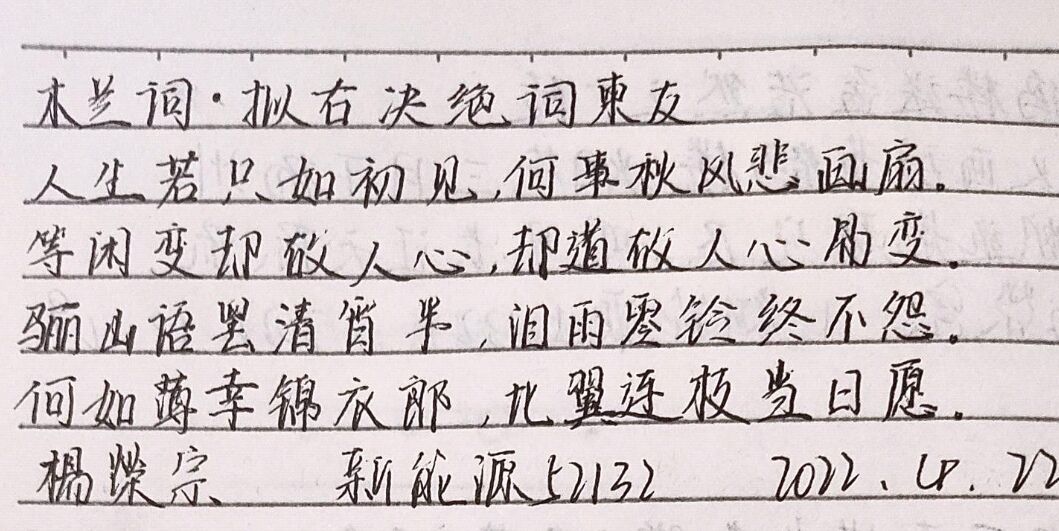 木兰词·拟古决绝词柬友
人生若只如初见,何事秋风悲画扇。
等闲变却故人心,却道故人心易变。
骊山语罢清宵半,泪雨零铃终不怨。
何如薄幸锦衣郎,比翼连枝当日愿。
杨荣宗 新能源52132 2022.4.22